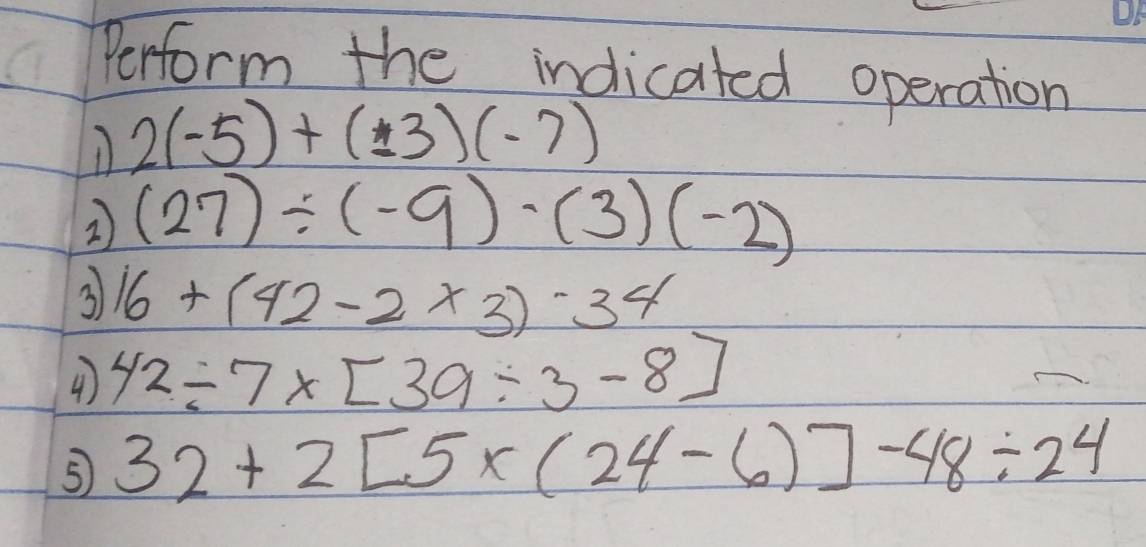 Perform the indicated operation
1) 2(-5) + (-3)(-7)
2) (27) ÷ (-9) - (3)(-2)
3) 16 + (42 - 2 × 3) - 34
4) 42 ÷ 7 × [39 ÷ 3 - 8]
5) 32 + 2 [5 × (24 - 6)] - 48 ÷ 24